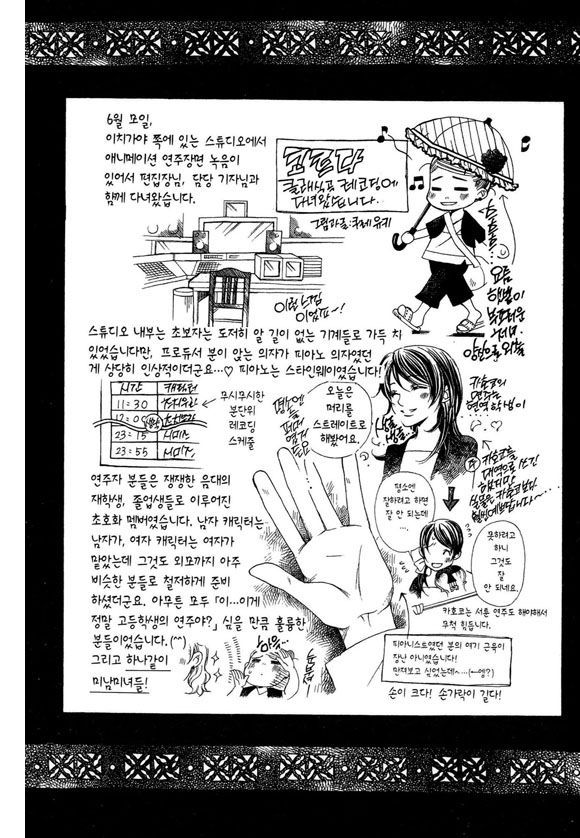 6월 모일,
이치가야 쪽에 있는 스튜디오에서
애니메이션 연주장면 녹음이
있어서 편집장님, 담당 기자님과
함께 다녀왔습니다.
코르다
클래식곡 레코딩에
다녀왔습니다.
그림과글:쿠레 유키
요즘
햇볕이
이런 느낌
이었죠~!
스튜디오 내부는 초보자는 도저히 알 길이 없는 기계들로 가득 차
있었습니다만, 프로듀서 분이 앉는 의자가 피아노 의자였던
게 상당히 인상적이더군요…♡ 피아노는 스타인웨이였습니다!
시간 캐릭터
11:30
12:0
23:15 시미즈
23:55 시미즈
무시무시한
분단위
레코딩
스케줄
오늘은
머리를
스트레이트로
해봤어요.
카호코의
연주는
현역 학생이
연주자 분들은 쟁쟁한 음대의
재학생, 졸업생들로 이루어진
초호화 멤버였습니다. 남자 캐릭터는
남자가, 여자 캐릭터는 여자가
맡았는데 그것도 외모까지 아주
비슷한 분들로 철저하게 준비
하셨더군요. 아무튼 모두 「이…이게
정말 고등학생의 연주야?」 싶을 만큼 훌륭한
분들이었습니다.(^^)
그리고 하나같이
미남미녀들!
평소엔
잘하려고 하면
잘 안 되는데
….
못하려고
하니
그것도
잘
안 되네요.
카호코는 서툰 연주도 해야해서
무척 힘듭니다.
피아니스트였던 분의 여기 근육이
장난 아니였습니다!
만져보고 싶었는데~….(←엥?)
손이 크다! 손가락이 길다!